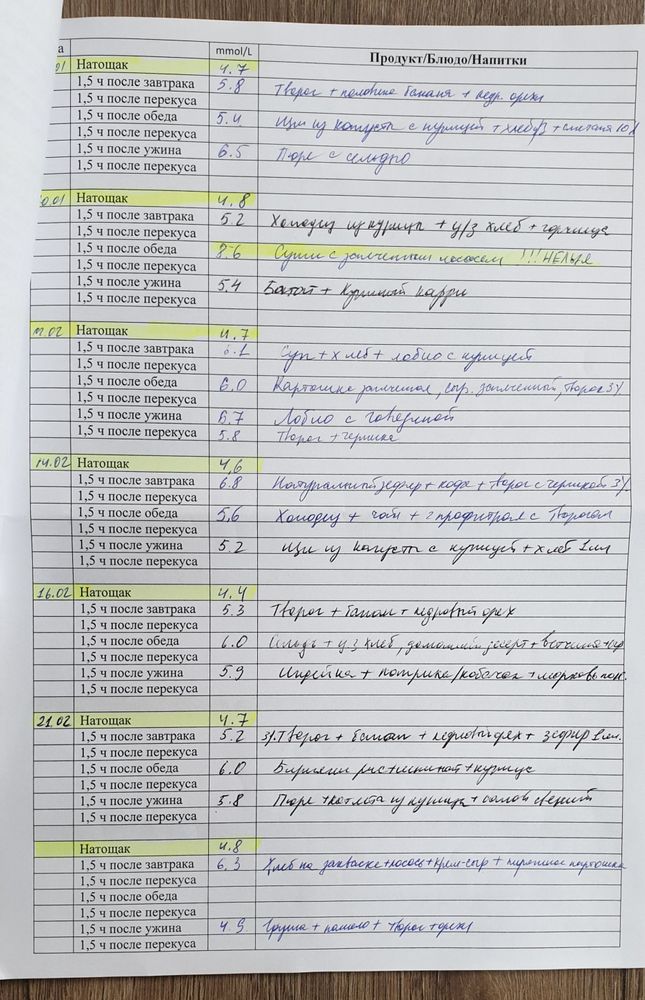 а mmol/L Продукт/Блюдо/Напитки
01 Натощак 4.7
1,5 ч после завтрака 5.8 Творог + половина банана + кедр. орехи
1,5 ч после перекуса
1,5 ч после обеда 5.4 Щи из капусты с курицей + хлеб у/з + сметана 10%
1,5 ч после перекуса
1,5 ч после ужина 6.5 Пюре с сельдью
1,5 ч после перекуса
0.01 Натощак 4.8
1,5 ч после завтрака 5.2 Холодец из курицы + у/з хлеб + горчица
1,5 ч после перекуса
1,5 ч после обеда 8.6 Суши с запеченным лососем !!! НЕЛЬЗЯ
1,5 ч после перекуса
1,5 ч после ужина 5.4 Батат + Куриный карри
1,5 ч после перекуса
.02 Натощак 4.7
1,5 ч после завтрака .1 Суп + хлеб + лобио с курицей
1,5 ч после перекуса
1,5 ч после обеда 6.0 Картошка запеченая, сыр запеченный, творог 3%
1,5 ч после перекуса
1,5 ч после ужина 6.7 Лобио с говядиной
1,5 ч после перекуса 5.8 Творог + черника
14.02 Натощак 4,6
1,5 ч после завтрака 6.8 Натуральный зефир + кофе + творог с черникой 3%
1,5 ч после перекуса
1,5 ч после обеда 5.6 Холодец + чай + 2 профитроля с творогом
1,5 ч после перекуса
1,5 ч после ужина 5.2 Щи из капусты с курицей + хлеб 1 шт
1,5 ч после перекуса
16.02 Натощак 4.4
1,5 ч после завтрака 5.3 Творог + банан + кедровый орех
1,5 ч после перекуса
1,5 ч после обеда 6.0 Сельдь + у/з хлеб, домашний десерт + ветчина +
1,5 ч после перекуса
1,5 ч после ужина 5.9 Индейка + паприка/кабачок + морковь
1,5 ч после перекуса
21.02 Натощак 4.7
1,5 ч после завтрака 5.2 3% Творог + банан + кедровый орех + зефир 1 шт.
1,5 ч после перекуса
1,5 ч после обеда 6.0 Бириани курица
1,5 ч после перекуса
1,5 ч после ужина 5.8 Пюре + котлета из курицы + салат свежий
1,5 ч после перекуса
Натощак 4.8
1,5 ч после завтрака 6.3 Хлеб на закваске + лосось + крем-сыр + пирожное картошка
1,5 ч после перекуса
1,5 ч после обеда
1,5 ч после перекуса
1,5 ч после ужина 4.9 Груша + памело + творог + орехи
1,5 ч после перекуса